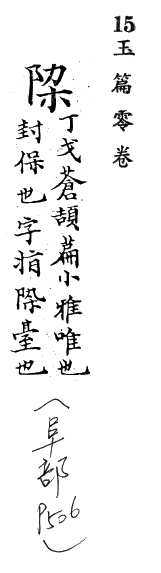 15 玉篇零卷
丁戈蒼頡萹小雅唯也
封保也字指臺也
（阜部 P506）